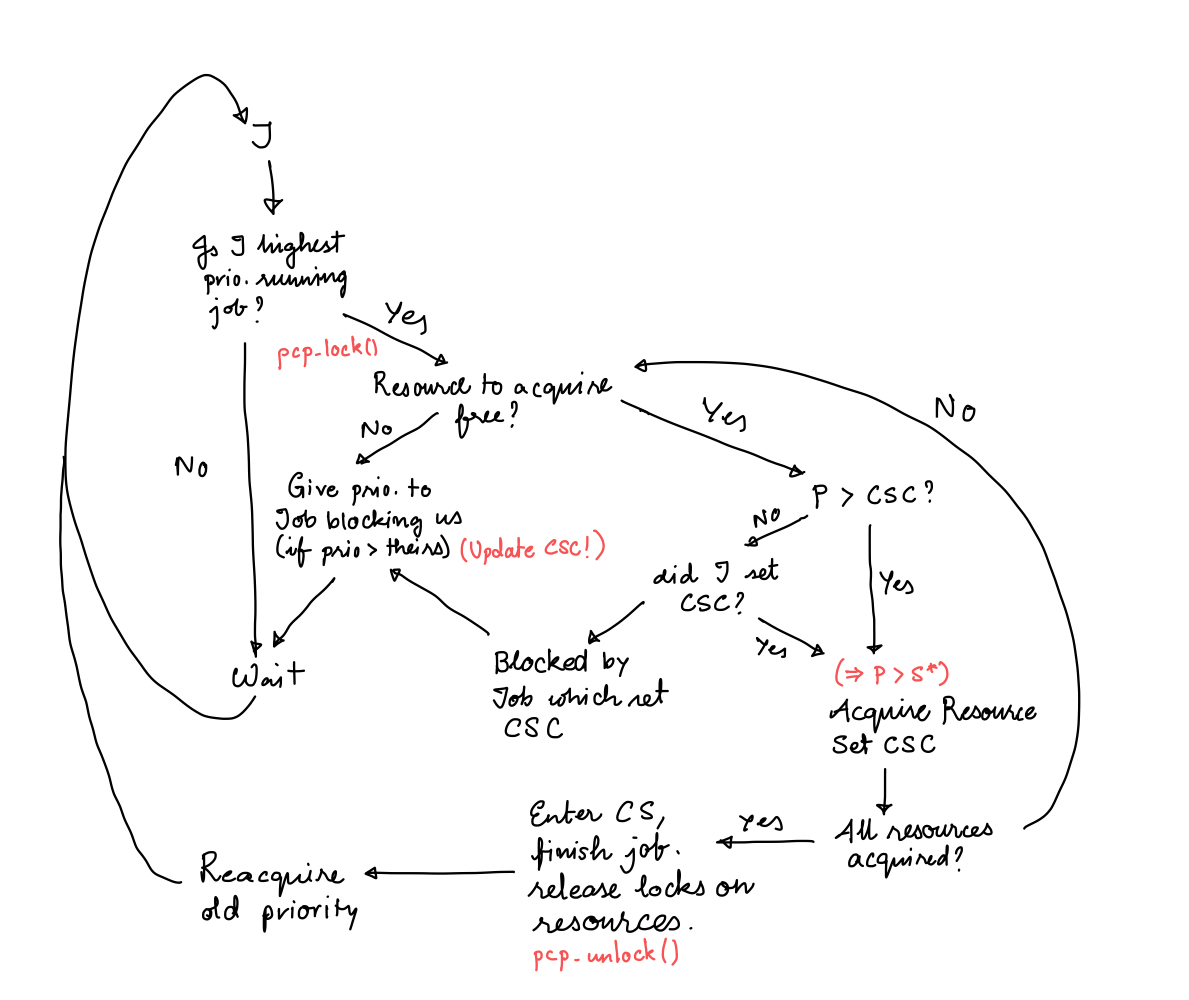 J
Is J highest
prio. running
job?
Yes
pcp-lock()
Resource to acquire
free?
No
Yes
No
No
Give prio. to
Job blocking us
(if prio > theirs) (Update CSC!)
P > CSC?
No
Yes
did J set
CSC?
Yes
Wait
Blocked by
Job which set
CSC
(⇒ P > S*)
Acquire Resource
Set CSC
All resources
acquired?
Yes
Enter CS,
finish job.
release locks on
resources.
pcp-unlock()
Reacquire
old priority